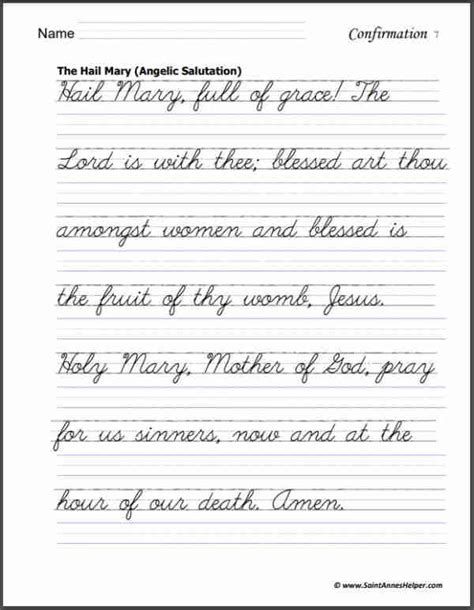 Name
Confirmation 7
The Hail Mary (Angelic Salutation)
Hail Mary, full of grace! The
Lord is with thee; blessed art thou
amongst women and blessed is
the fruit of thy womb, Jesus.
Holy Mary, Mother of God, pray
for us sinners, now and at the
hour of our death. Amen.
© www.SaintAnnesHelper.com